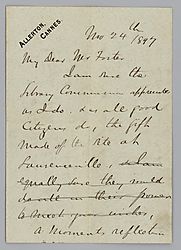 ALLERTON,
CANNES.
Nov 24th 1897
My Dear Mr Foster
I am sure the
library Commission appreciate
as I do. & as all good
Citizens do, the gift
made of the site at
Lawrenceville,
equally sure they would
in their power
to meet your wishes,
a moments reflection